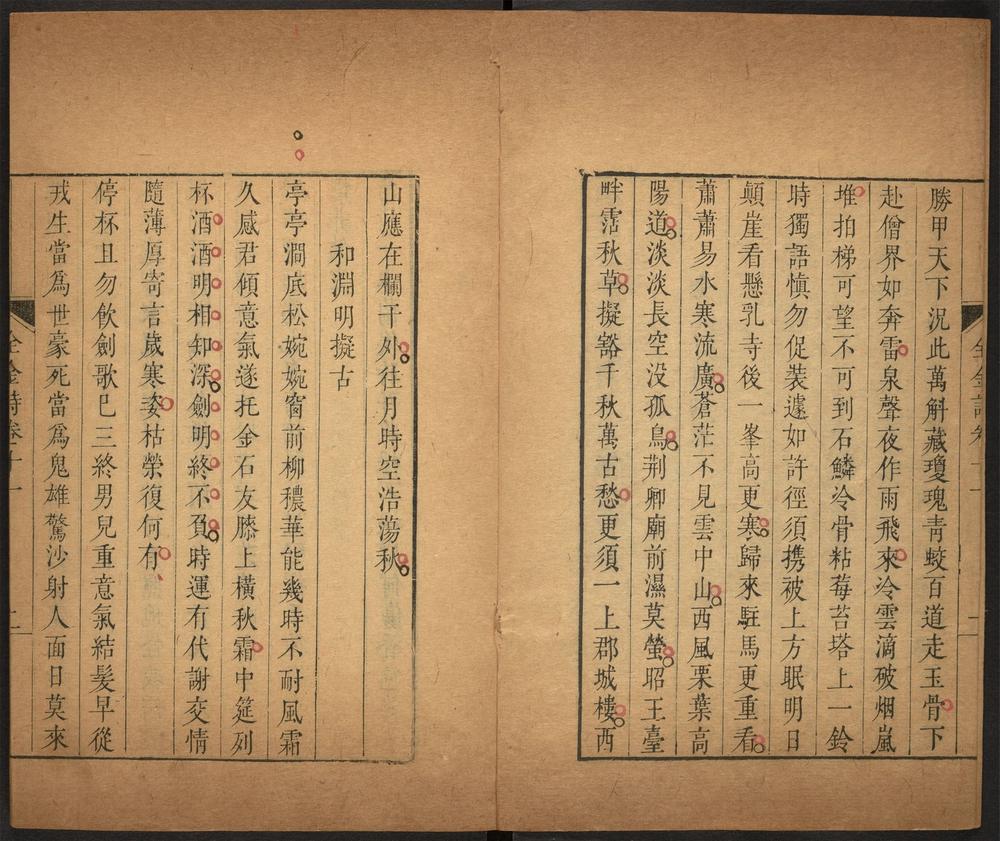 勝甲天下況此萬斛藏瓊瑰靑蛟百道走玉骨下
赴僧界如奔雷泉聲夜作雨飛來冷雲滴破烟嵐
堆拍梯可望不可到石鱗冷骨粘莓苔塔上一鈴
時獨語慎勿促裝遽如許徑須携被上方眠明日
顛崖看懸乳寺後一峯高更寒歸來駐馬更重看
蕭蕭易水寒流廣蒼茫不見雲中山西風栗葉高
陽道淡淡長空没孤鳥荆卿廟前濕莫螢昭王臺
畔霑秋草擬豁千秋萬古愁更須一上郡城樓西
全金詩卷十一
二
山應在欄干外往月時空浩蕩秋
和淵明擬古
亭亭澗底松婉婉窗前柳穠華能幾時不耐風霜
久感君傾意氣遂托金石友膝上橫秋霜中筵列
杯酒酒明相知深劍明終不負時運有代謝交情
隨薄厚寄言歲寒姿枯榮復何有
停杯且勿飲劍歌巳三終男兒重意氣結髮早從
戎生當爲世豪死當爲鬼雄驚沙射人面日莫來
全金詩卷十一
二